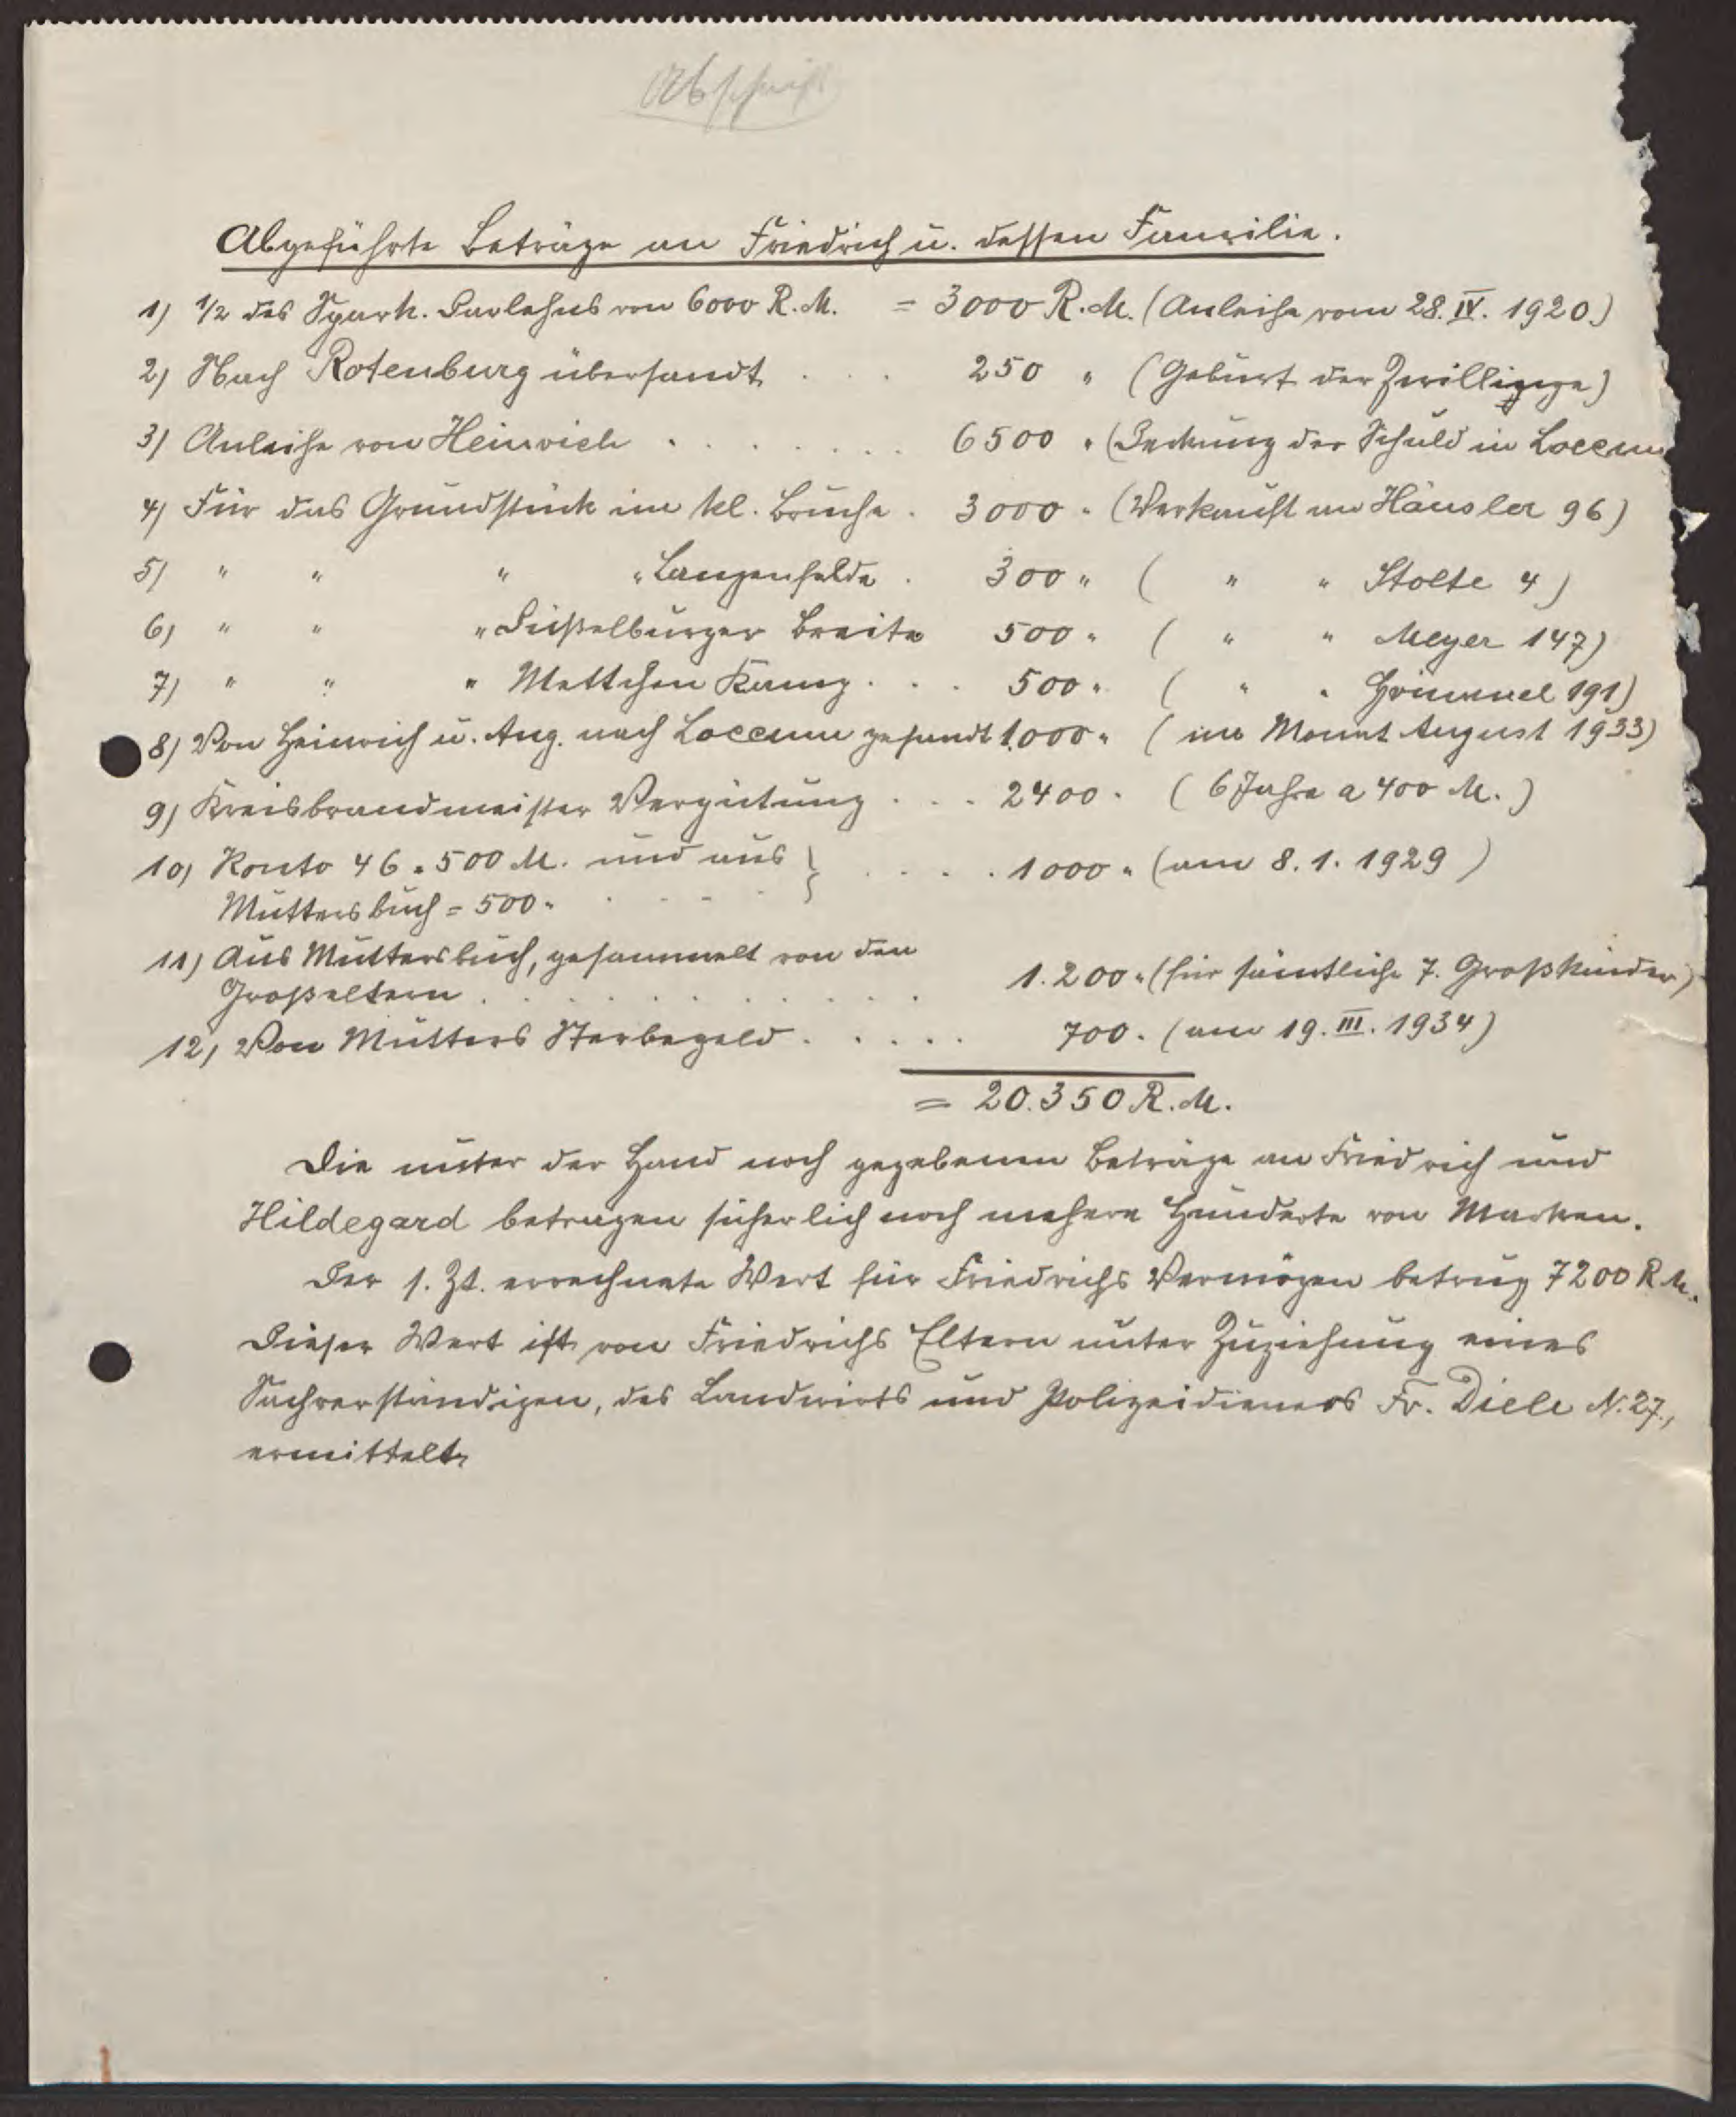 Abschrift
Abgeführte Beträge an Friedrich u. dessen Familie.
1) 1/2 des Spark. Darlehns von 6000 R. M. = 3000 R. M. (Anleihe vom 28. IV. 1920.)
2) Nach Rotenburg übersandt . . . 250 " (Geburt der Zwillinge)
3) Anleihe von Heinrich . . . . . . . 6500 " (Deckung der Schuld in Loccum
4) Für das Grundstück im kl. Bruche . 3000 " (Verkauft an Häusler 96)
5) " " " " Langenfelde . 300 " ( " " Stolte 4)
6) " " " Düßelburger Breite 500 " ( " " Meyer 147)
7) " " " Mettchen Kamp . . . 500 " ( " " Grimmel 191)
8) Von Heinrich u. Aug. nach Loccum gesandt 1.000 " ( im Monat August 1933)
9) Kreisbrandmeister Vergütung . . . 2400 " ( 6 Jahre a 400 M. )
10) Konto 46 = 500 M. und aus } . . . . 1000 " (am 8. 1. 1929 )
Muttersbuch = 500 " . . . .
11) Aus Muttersbuch, gesammelt von den
Großeltern . . . . . . . . . . 1.200 " (für sämtliche 7. Großkinder)
12) Von Mutters Sterbegeld . . . . . 700 " (am 19. III. 1934)
= 20.350 R. M.
Die unter der Hand noch gegebenen Beträge an Friedrich und
Hildegard betragen sicherlich noch mehere Hunderte von Marken.
Der s. Zt. errechnete Wert für Friedrichs Vermögen betrug 7200 R M.
Dieser Wert ist von Friedrichs Eltern unter Zuziehung eines
Sachverständigen, des Landwirts und Polizeidieners Fr. Diele N. 27.,
ermittelt.